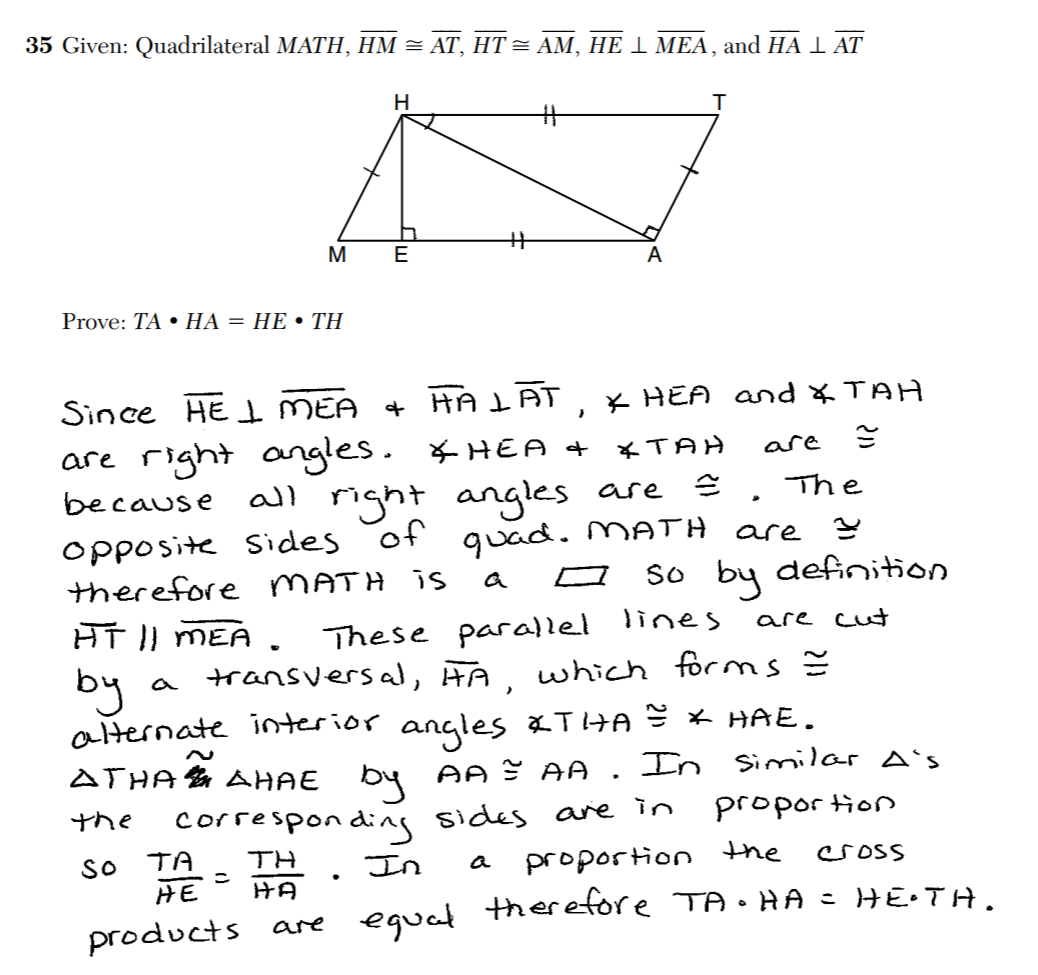 35 Given: Quadrilateral MATH, HM ≅ AT, HT ≅ AM, HE ⊥ MEA, and HA ⊥ AT
H T
M E A
Prove: TA • HA = HE • TH
Since HE ⊥ MEA + HA ⊥ AT, ∡ HEA and ∡ TAH
are right angles. ∡ HEA + ∡ TAH are ≅
because all right angles are ≅. The
opposite sides of quad. MATH are ≅
therefore MATH is a ▱ so by definition
HT || MEA. These parallel lines are cut
by a transversal, HA, which forms ≅
alternate interior angles ∡THA ≅ ∡ HAE.
△THA ~ △HAE by AA ≅ AA. In similar △'s
the corresponding sides are in proportion
so TA/HE = TH/HA. In a proportion the cross
products are equal therefore TA • HA = HE • TH.